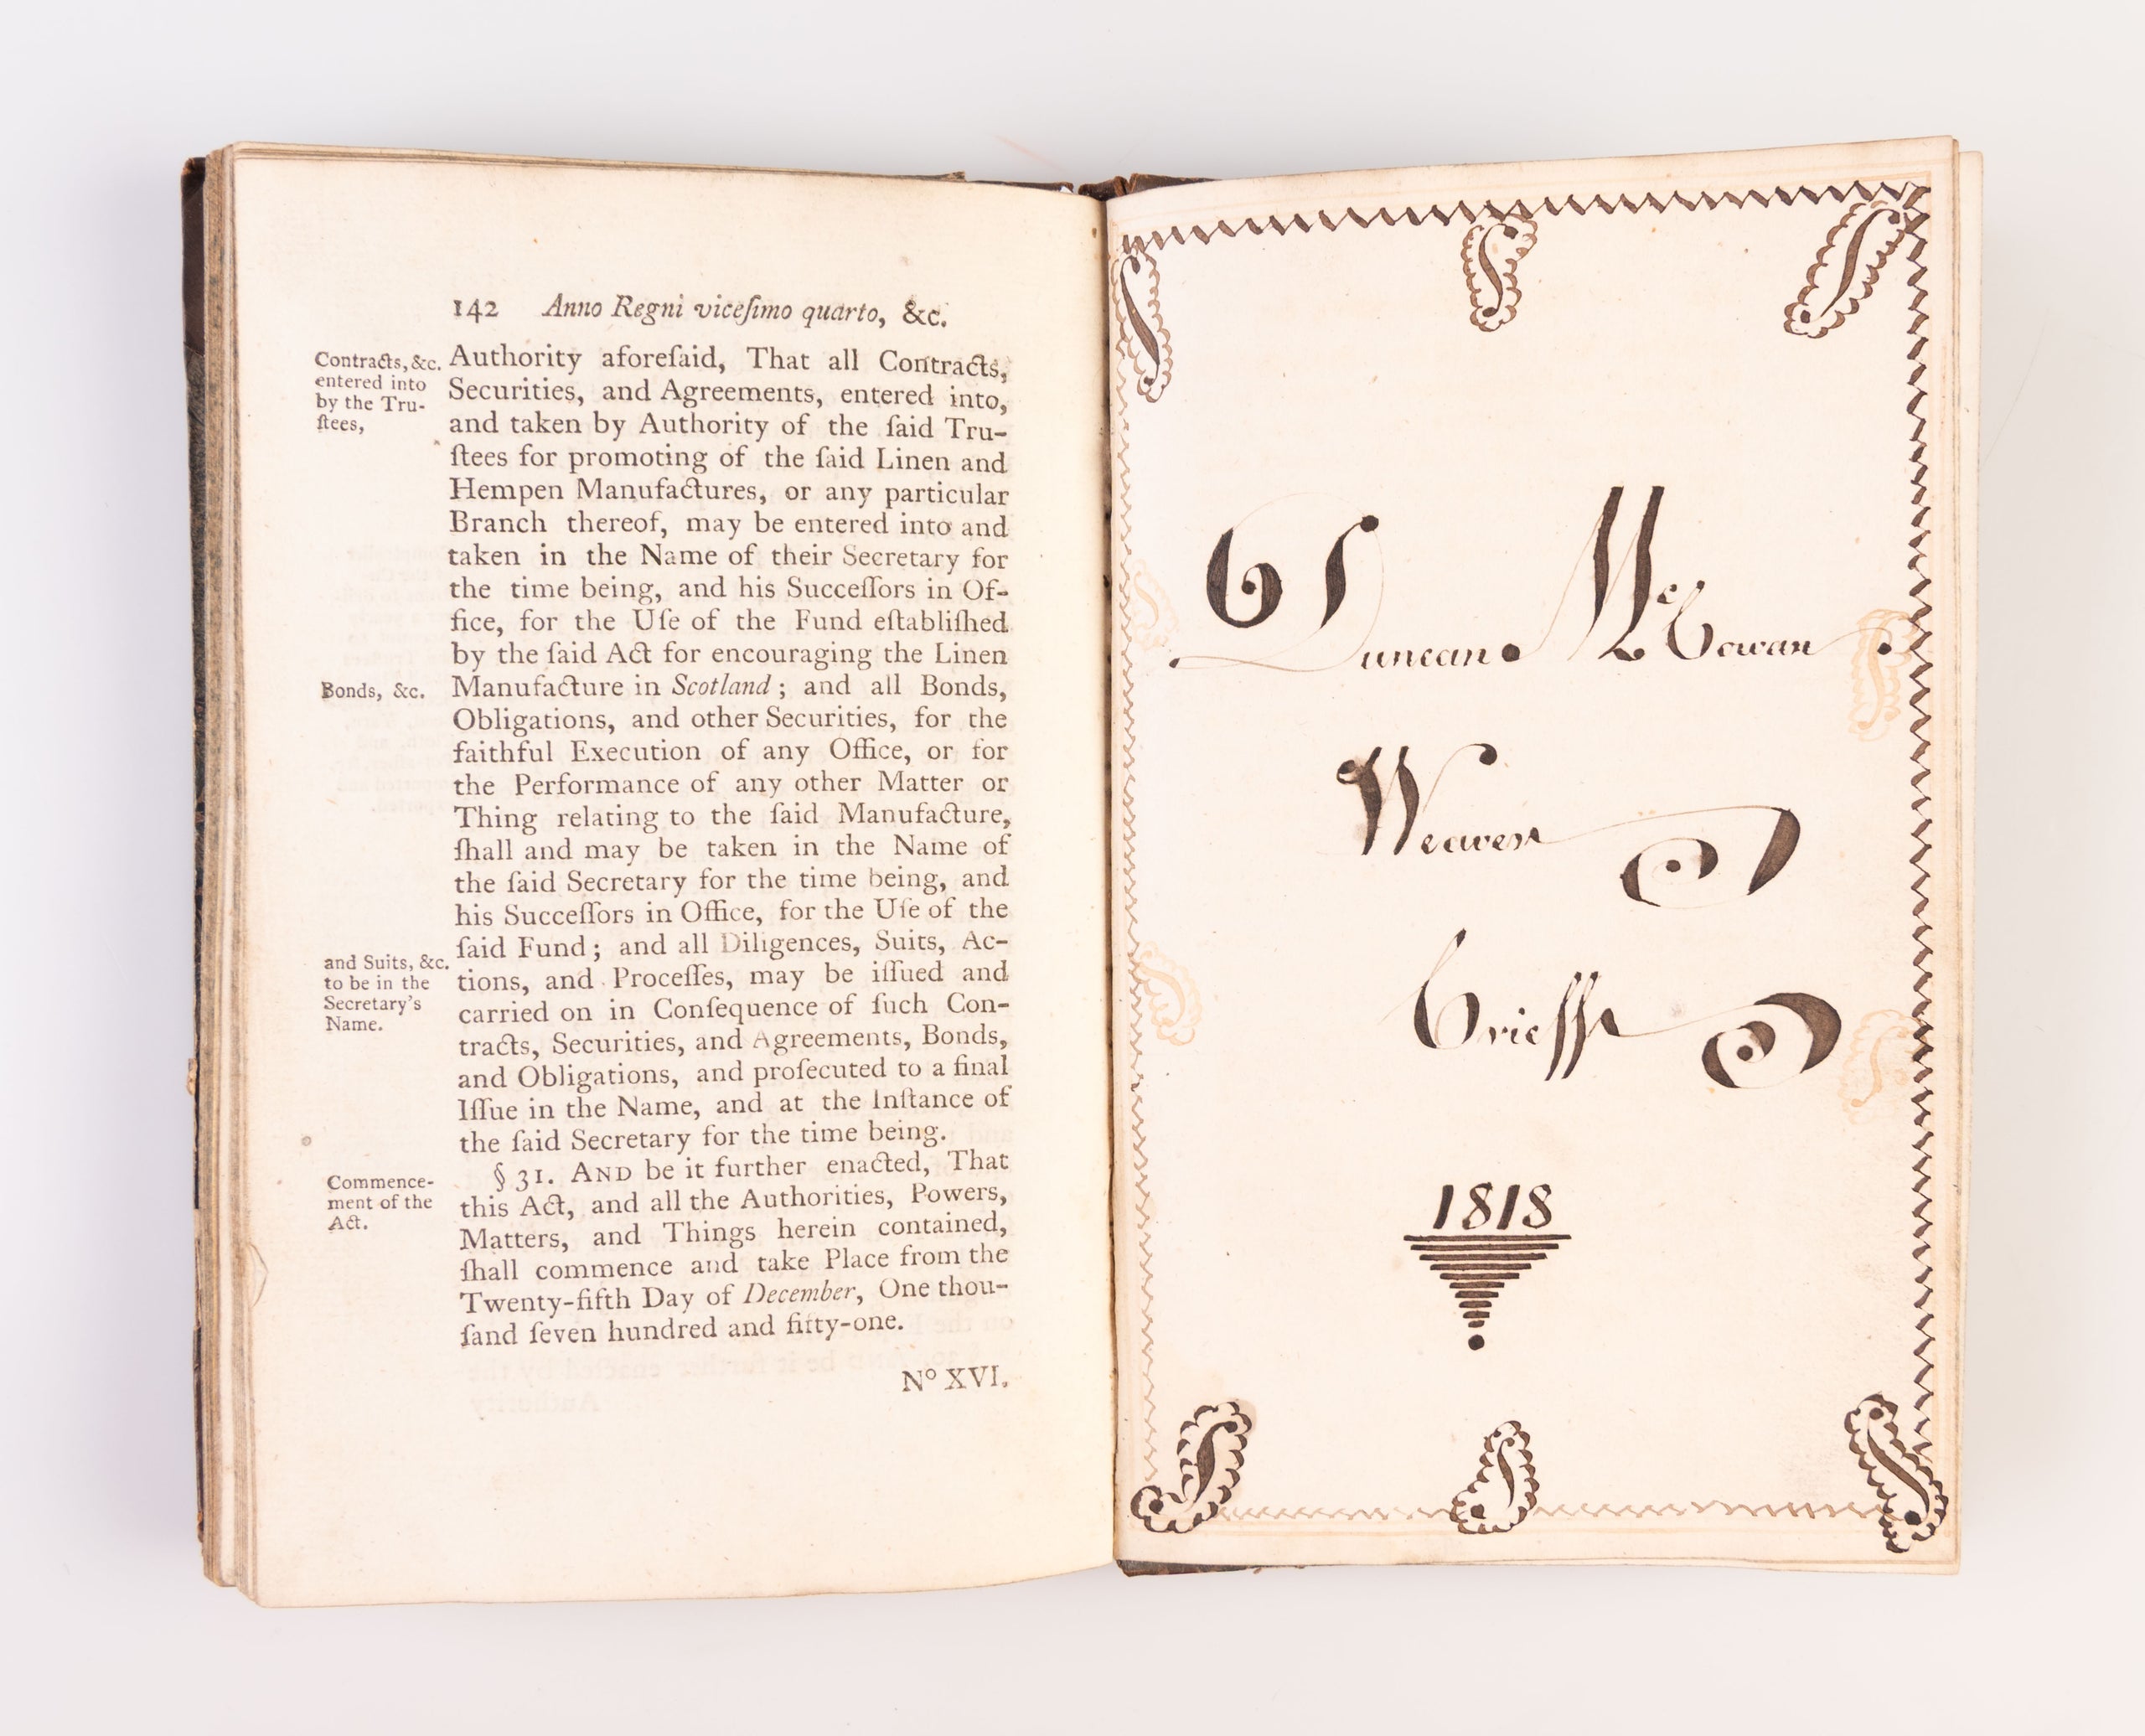 142 Anno Regni viceſimo quarto, &c.
Contracts, &c.
entered into
by the Tru-
ſtees,
Authority aforeſaid, That all Contracts,
Securities, and Agreements, entered into,
and taken by Authority of the ſaid Tru-
ſtees for promoting of the ſaid Linen and
Hempen Manufactures, or any particular
Branch thereof, may be entered into and
taken in the Name of their Secretary for
the time being, and his Succeſſors in Of-
fice, for the Uſe of the Fund eſtabliſhed
by the ſaid Act for encouraging the Linen
Bonds, &c.
Manufacture in Scotland; and all Bonds,
Obligations, and other Securities, for the
faithful Execution of any Office, or for
the Performance of any other Matter or
Thing relating to the ſaid Manufacture,
ſhall and may be taken in the Name of
the ſaid Secretary for the time being, and
his Succeſſors in Office, for the Uſe of the
ſaid Fund; and all Diligences, Suits, Ac-
and Suits, &c.
to be in the
Secretary's
Name.
tions, and Proceſſes, may be iſſued and
carried on in Conſequence of ſuch Con-
tracts, Securities, and Agreements, Bonds,
and Obligations, and proſecuted to a final
Iſſue in the Name, and at the Inſtance of
the ſaid Secretary for the time being.
Commence-
ment of the
Act.
§ 31. AND be it further enacted, That
this Act, and all the Authorities, Powers,
Matters, and Things herein contained,
ſhall commence and take Place from the
Twenty-fifth Day of December, One thou-
ſand ſeven hundred and fifty-one.
No XVI.
Duncan McCowan
Weaver
Crieff
1818